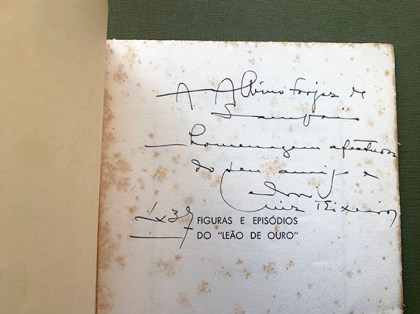 A Albino Forjaz de
Sampaio
homenagem afectuosa
do seu amigo e
adm.
Luiz Teixeira
FIGURAS E EPISÓDIOS
DO "LEÃO DE OURO"